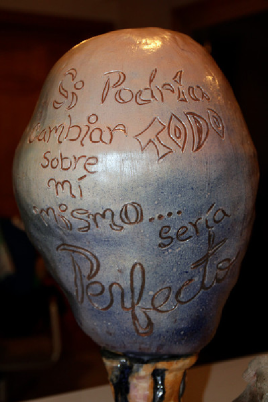 Si Podrías
Cambiar TODO
sobre
mí
mismo....
sería
Perfecto